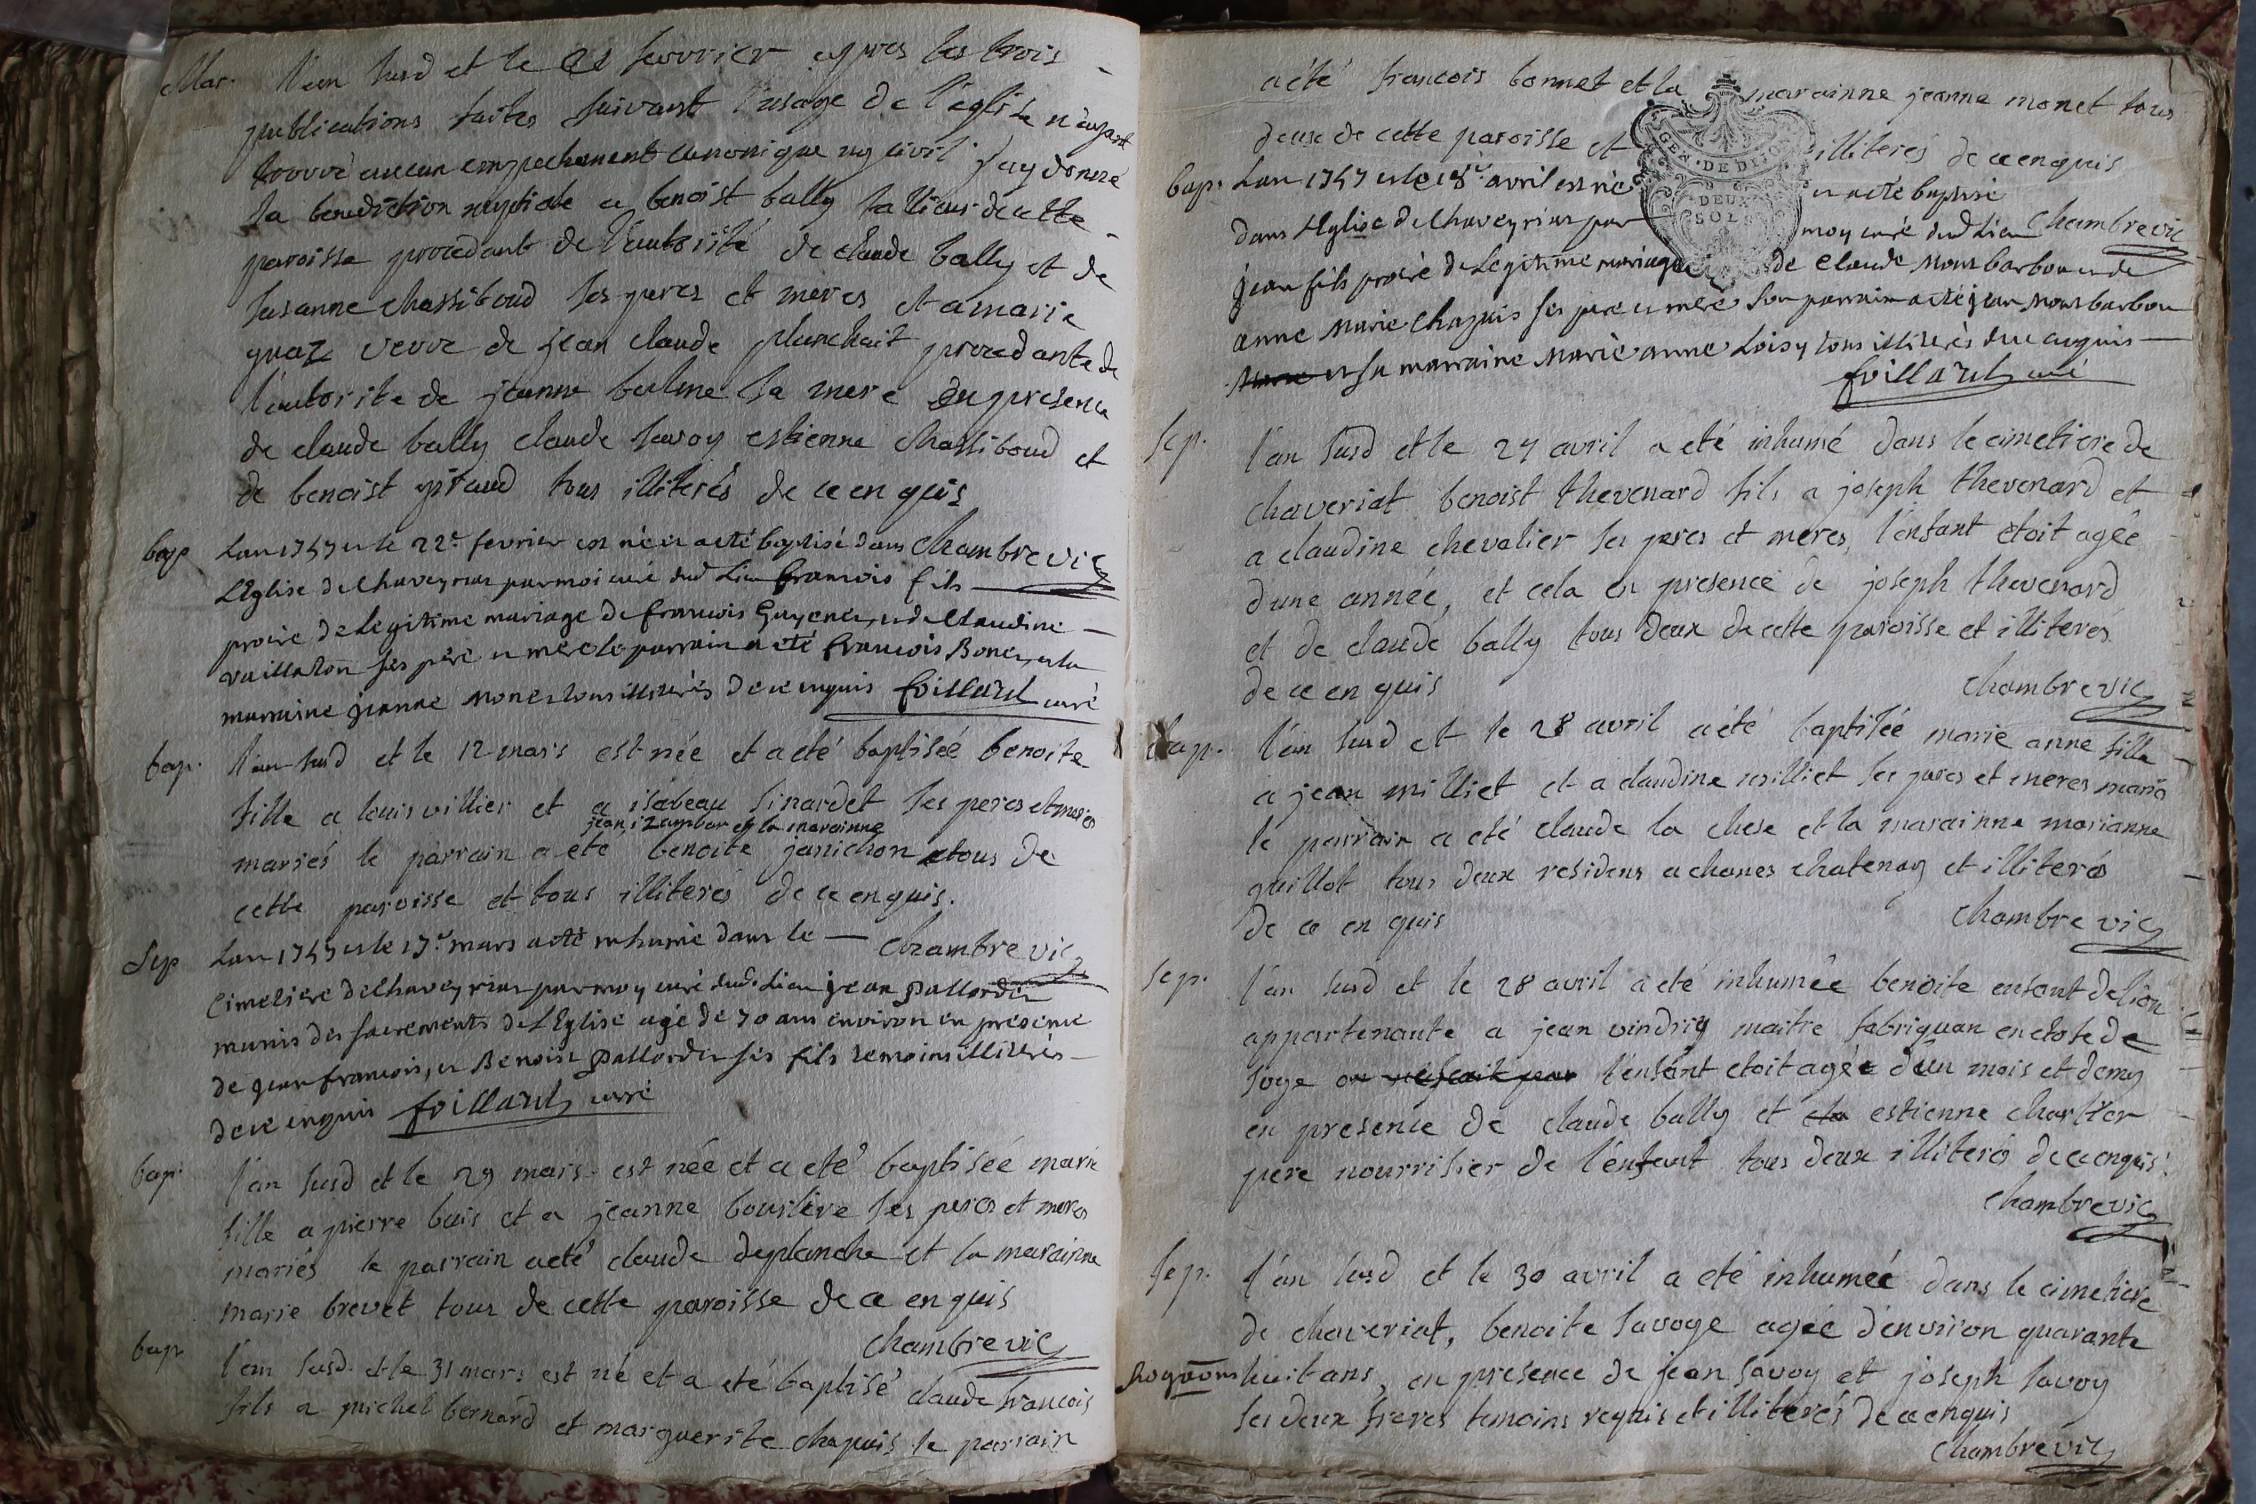 Mar. l'an susd et le 21 fevrier apres les trois
publications faites suivant l'usage de l'eglise n'ayant
trouvé aucun empechement canonique ny civil j'ay donné
la benediction nuptiale a benoist bally tallieur de cette
paroisse procedant de l'autorité de claude bally et de
susanne chassiboud ses peres et meres et a marie
guaz veuve de jean claude planchait procedante de
l'autorite de jeanne balme sa mere en presence
de claude bally claude savoy estienne chassiboud et
de benoist giraud tous illiterés de ce enquis
chambre vic
bap Lan 1747 et le 22e fevrier est né et a eté baptisé dans
L'Eglise de Chaveyriar par moi curé dud Lieu francois fils
procré de Legitime mariage de francois Guyenet et de Claudine
vuillaton ses père et mere le parrain a eté francois Bonet et la
marraine jeanne monet tous illiterés de ce enquis foillard curé
bap. l'an susd et le 12 mars est née et a eté baptisée benoite
fille a louis villier et a isabeau sinardet ses peres et meres
jean izambar et la marainne
mariés le parrain a eté benoite janichon tous de
cette paroisse et tous illiterés de ce enquis.
chambre vic
Sep Lan 1747 et le 17e mars a eté inhumé dans le
Cimetiere de Chaveyriar par moy curé dud. Lieu jean pallordet
munis des sacrements de L'Eglise agé de 70 ans environ en presence
de jean francois, et Benoist pallordet ses fils temoins illiterés
de ce enquis foillard curé
bap. l'an susd et le 29 mars est née et a eté baptisée marie
fille a pierre buis et a jeanne bouilive ses peres et meres
mariés le parrain a eté claude deplanche et la marainne
marie brevet tous de cette paroisse de ce enquis
chambre vic
bap l'an susd. et le 31 mars est né et a eté baptisé claude francois
fils a michel bernard et marguerite chapuis le parrain
a été francois bonnet et la marainne jeanne monet tous
deux de cette paroisse et illiterés de ce enquis
chambre vic
GEN. DE DIJON
DEUX
SOLS
bap. Lan 1747 et le 18e avril est né et a eté baptisé
dans l'Eglise de Chaveyriar par moy curé dud Lieu
jean fils procré de Legitime mariage de Claude Montbarbon et de
anne Marie Chapuis ses pere et mere son parrain a eté jean Montbarbon
et sa marraine Marie anne Loisy tous illiterés de ce enquis
foillard curé
Sep. l'an susd et le 27 avril a eté inhumé dans le cimetiere de
chaveriat benoist thevenard fils a joseph thevenard et
a claudine chevalier ses peres et meres, l'enfant etoit agée
d'une année, et cela en presence de joseph thevenard
et de claude bally tous deux de cette paroisse et illiterés
de ce en quis chambre vic
bap. l'an susd et le 28 avril a été baptisée marie anne fille
a jean milliet et a claudine milliet ses peres et meres mariés
le parrain a eté claude la chese et la marainne marianne
guillot tous deux residens a chanes chatenay et illiterés
de ce en quis chambre vic
sep. l'an susd et le 28 avril a eté inhumée benoite enfant de lion
appartenante a jean vindriy maitre fabriquan en etofe de
soye l'enfant etoit agée d'un mois et demy
en presence de claude bally et estienne charlier
pere nourrisier de l'enfant tous deux illiterés de ce enquis
chambre vic
sep. l'an susd et le 30 avril a eté inhumée dans le cimetiere
de chaveriat, benoite savoye agée d'environ quarante
huit ans, en presence de jean savoy et joseph savoy
ses deux freres temoins requis et illiterés de ce enquis
chambre vic